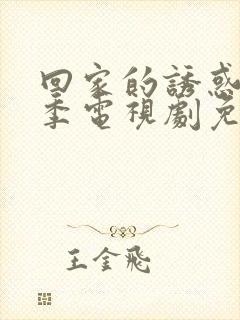 回家的誘惑
季電視劇免
王金飛